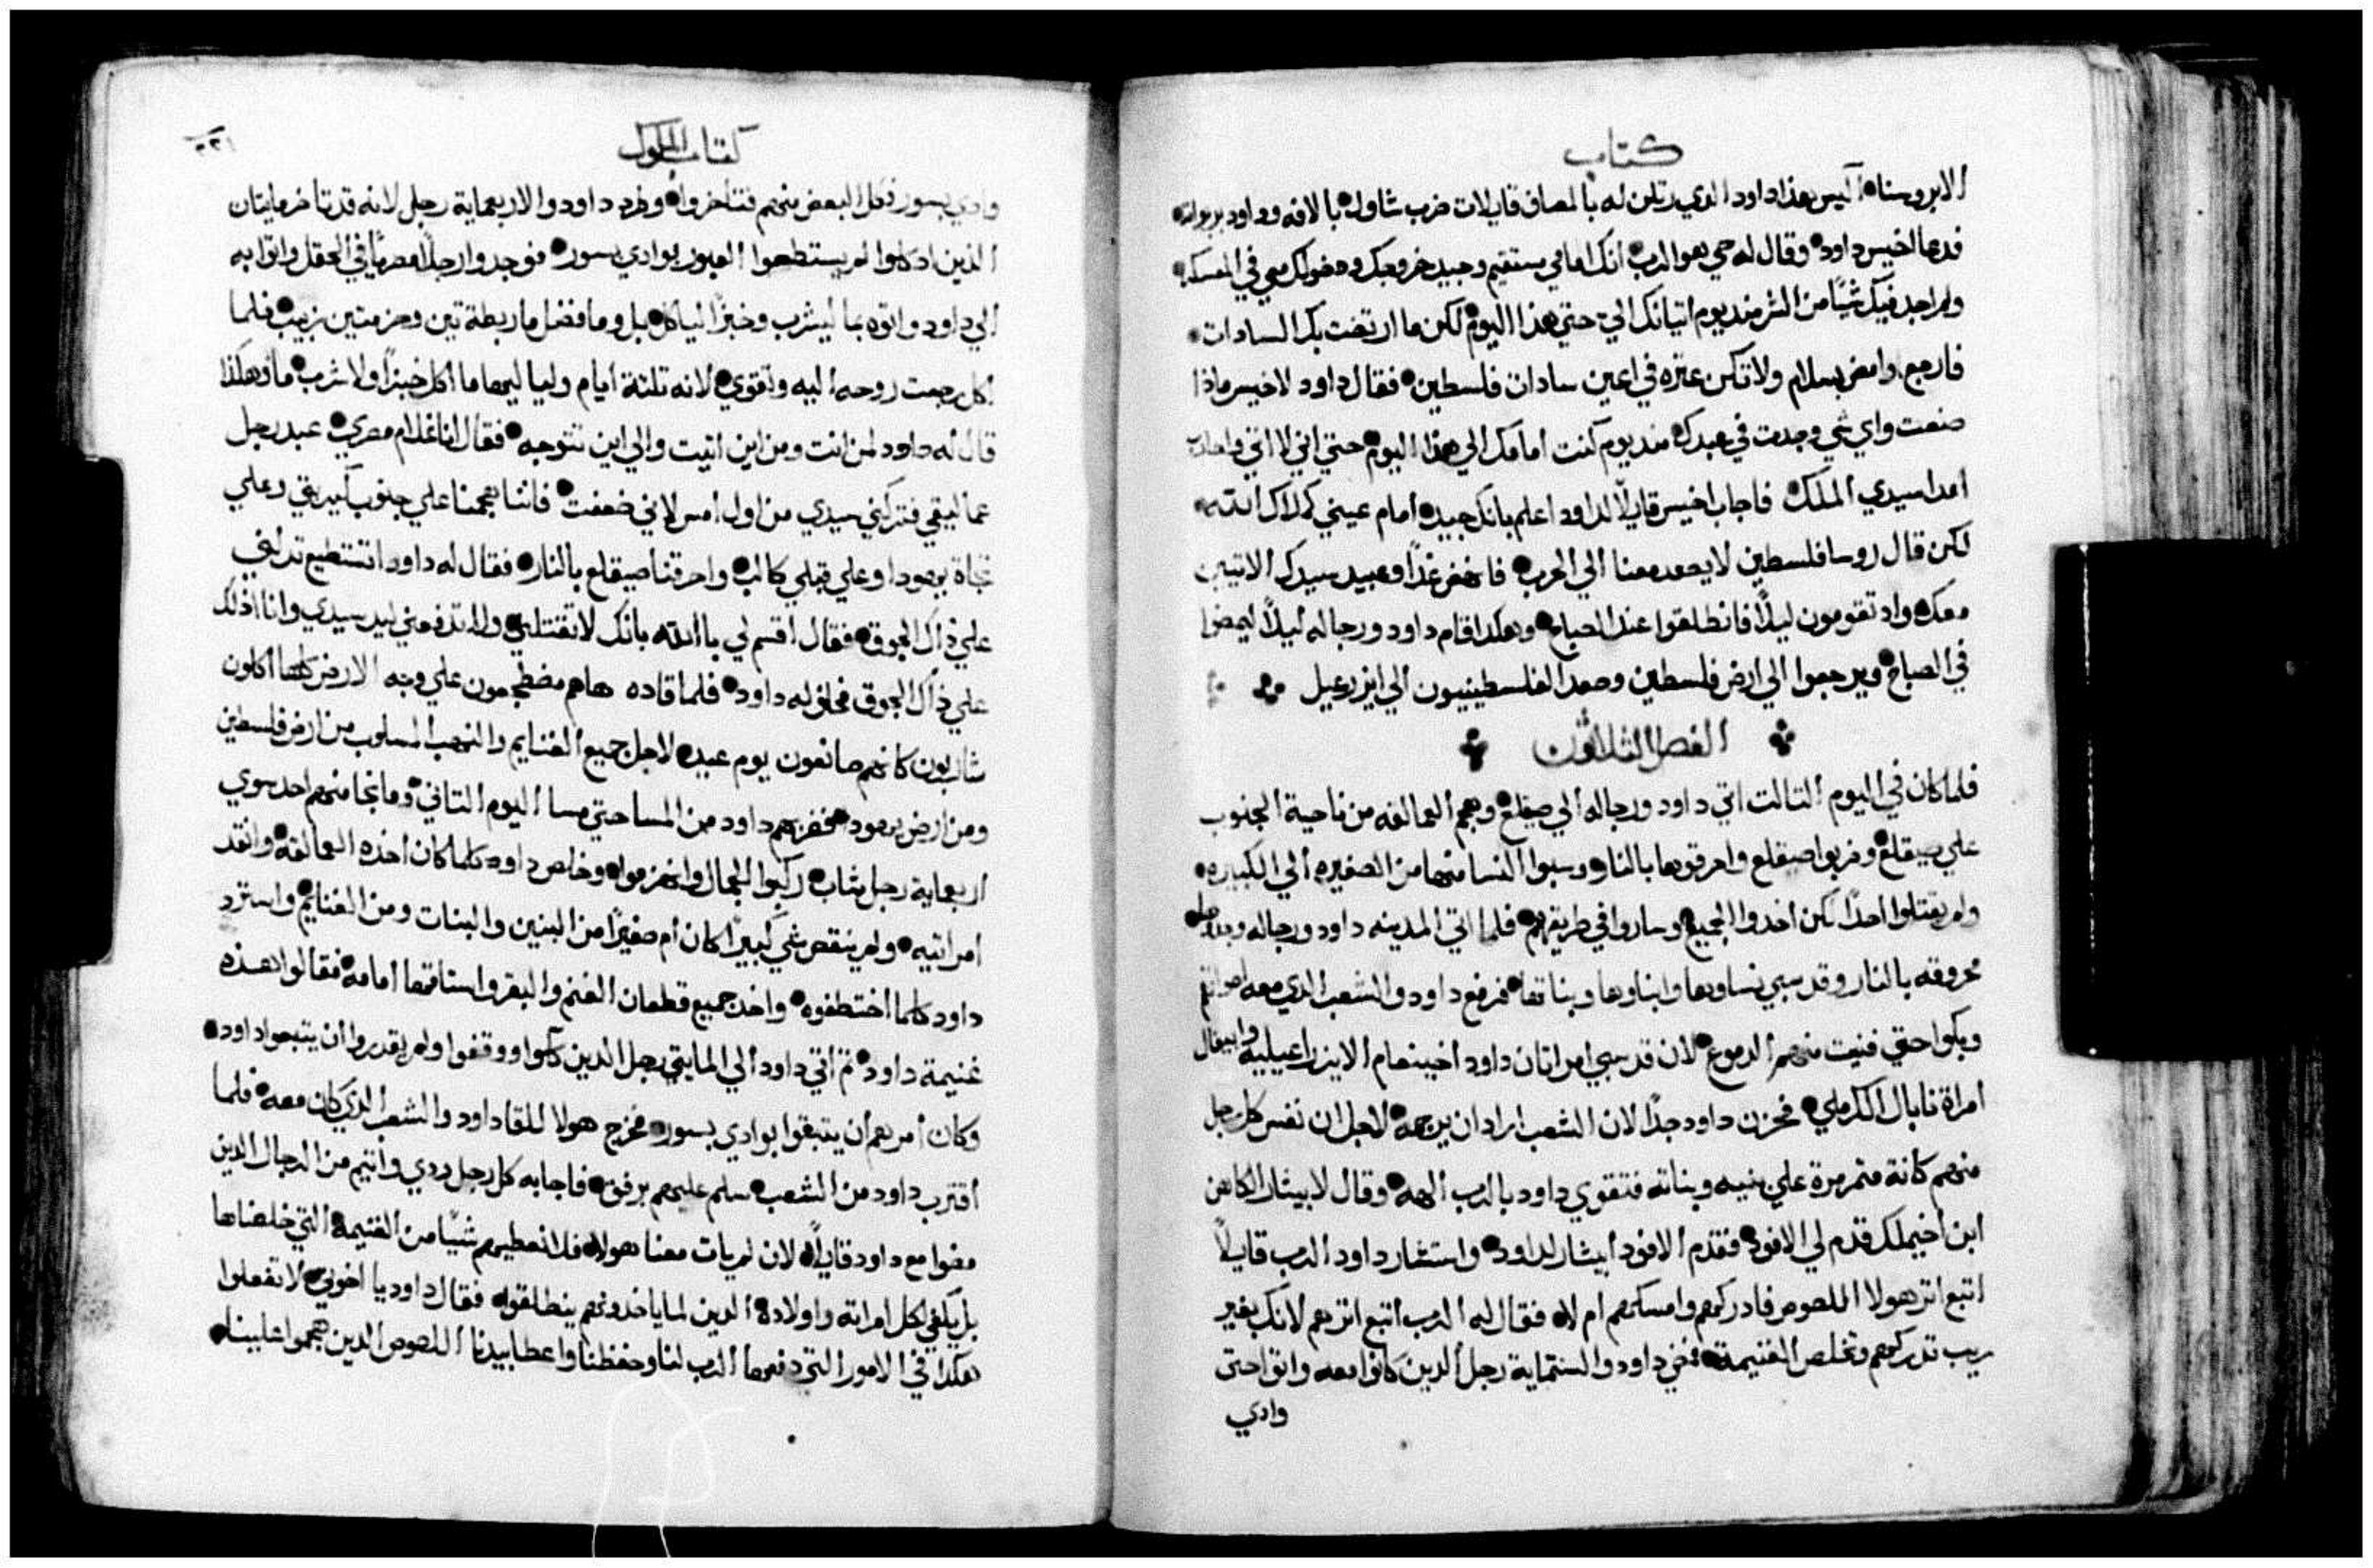 كتاب
الابروسنا أليس هذا داود الدي رتلن له بالمصاف قايلات ضرب شاول بالافه وداود بربواته
فدعا اخيس داود وقال له حي هو الرب انك امامي مستقيم وجيد خروجك ودخولك معي في العسكر
ولم اجد فيك شيًا من الشر منديوم اتيانك الي حتي هذا اليوم لكن ما ارتضت بك السادات
فارجع وامض بسلام ولا تكن عتره في اعين سادات فلسطين فقال داود لاخيس ماذا
صنعت واي شي وجدت في عبدك منديوم كنت امامك الي هذا اليوم حتي اني لا اتي واحارب
اعدا سيدي الملك فاجاب اخيس قايلاً لداود اعلم بانك جيد امام عيني كملاك الله
لكن قال روسا فلسطين لا يصعد معنا الي الحرب فانهض غدًا وعبيد سيدك الاتيين
معك واد تقومون ليلاً فانطلقوا عند الصباح وهكدا قام داود ورجاله ليلاً ليمضوا
في الصباح ويرجعوا الي ارض فلسطين وصعد الفلسطينيون الي ايزرعيل
الفصل الثلاثون
فلما كان في اليوم التالت اتي داود ورجاله الي صيقلغ وهجم العمالقه من ناحية الجنوب
علي صيقلغ وضربوا صيقلع واحرقوها بالنار وسبوا النسا منها من الصغيره الي الكبيره
ولم يقتلوا احدًا لكن اخدوا الجميع وساروا في طريقهم فلما اتي المدينه داود ورجاله وجدوها
محروقه بالنار وقد سبي نساوها وابناوها وبناتها فرفع داود والشعب الدي معه اصواتهم
وبكوا حتي فنيت منهم الدموع لان قد سبي امراتان داود اخينعام الايزراعيليه وابيغال
امراة نابال الكرملي فحزن داود جدًا لان الشعب اراد ان يرجمه لاجل ان نفس كل رجل
منهم كانة متمرمرة علي بنيه وبناته فتقوي داود بالرب الهه وقال لابيثار الكاهن
ابن اخيملك قدم لي الافود فقدم الافود ابيثار لداود واستشار داود الرب قايلاً
اتبع اتر هولا اللصوص فادركهم وامسكهم ام لا فقال له الرب اتبع اترهم لانك بغير
ريب تدركهم وتخلص الغنيمة فمضي داود والستماية رجل الدين كانوا معه واتوا حتي
وادي
كتاب الملوك
٢٢١
وادي بسور وكل البعض منهم فتاخروا وطرد داود والاربعماية رجل لانه قد تاخر مايتان
الذين اد كلوا لم يستطعوا العبور بوادي بسور فوجدوا رجلاً مصريًا في الحقل واتوا به
الي داود واتوه بما ليشرب وخبزًا لياكل بل وما فضل ما ربطة تين وحزمتين زبيب فلما
اكل رجعت روحه اليه وتقوي لانه تلتة ايام ولياليها ما اكل خبزًا ولا شرب ماً وهكذا
قال له داود لمن انت ومن اين اتيت والي اين تتوجه فقال انا غلام مصري عبد رجل
عماليقي فتركني سيدي من اول امس لاني ضعفت فاننا هجمنا علي جنوب آيريتي وعلي
تجاة يهودا وعلي قبلي كالب واحرقنا صيقلع بالنار فقال له داود اتستطيع تدلني
علي ذاك الجوق فقال اقسم لي باالله بانك لا تقتلني ولا تدفعني ليد سيدي وانا ادلك
علي ذاك الجوق فحلف له داود فلما قاده هاهم مضطجعون علي وجه الارض كلها اكلون
شاربون كانهم صانعون يوم عيده لاجل جميع الغنايم والنهب المسلوب من ارض فلسطين
ومن ارض يهودا فضربهم داود من المسا حتي مسا اليوم التاني وما نجا منهم احد سوي
اربعماية رجل شاب ركبوا الجمال وانهزموا وخلص داود كلما كان اخذه العمالقه وانقد
امراتيه ولم ينقص شي كبيرًا كان ام صغيرًا من البنين والبنات ومن الغنايم واسترد
داود كلما اختطفوه واخد جميع قطعان الغنم والبقر واستاقها امامه فقالوا هذه
غنيمة داود ثم اتي داود الي المايتي رجل الدين كلوا ووقفوا ولم يقدروا ان يتبعوا داود
وكان امرهم ان يتبقوا بوادي بسور فخرج هولا للقا داود والشعب الدي كان معه فلما
اقترب داود من الشعب سلم عليهم برفق فاجابه كل رجل ردي واتيم من الرجال الدين
مضوا مع داود قايلاً لان لم يات معنا هولا فلا نعطيهم شيًا من الغنيمة التي خلصناها
بل يكفي لكل امراته واولاده الدين لما ياخدونهم ينطلقوا فقال داود يا اخوتي لا تفعلوا
هكدا في الامور التي دفعها الرب لنا وحفظنا واعطا بيدنا اللصوص الدين هجموا علينا